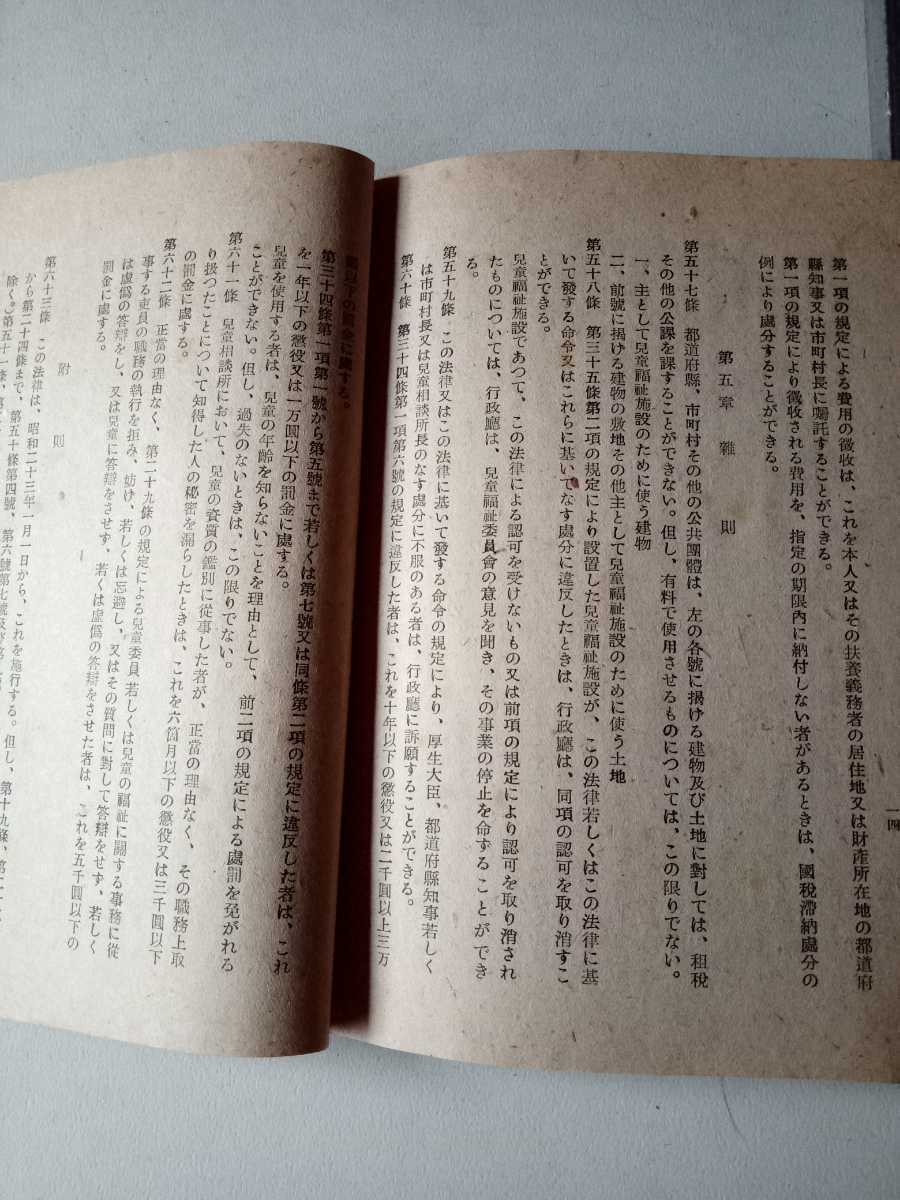 一四
第一項の規定による費用の徴收は、これを本人又はその扶養義務者の居住地又は財産所在地の都道府
縣知事又は市町村長に囑託することができる。
第一項の規定により徴收される費用を、指定の期限內に納付しない者があるときは、國稅滯納處分の
例により處分することができる。
第五章 雜則
第五十七條 都道府縣、市町村その他の公共團體は、左の各號に揭ける建物及び土地に對しては、租稅
その他の公課を課することができない。但し、有料で使用させるものについては、この限りでない。
一、主として兒童福祉施設のために使う建物
二、前號に揭ける建物の敷地その他主として兒童福祉施設のために使う土地
第五十八條 第三十五條第二項の規定により設置した兒童福祉施設が、この法律若しくはこの法律に基
いて發する命令又はこれらに基いてなす處分に違反したときは、行政廳は、同項の認可を取り消すこ
とができる。
兒童福祉施設であつて、この法律による認可を受けないもの又は前項の規定により認可を取り消され
たものについては、行政廳は、兒童福祉委員會の意見を聞き、その事業の停止を命することができ
る。
第五十九條 この法律又はこの法律に基いて發する命令の規定により、厚生大臣、都道府縣知事若しく
は市町村長又は兒童相談所長のなす處分に不服のある者は、行政廳に訴願することができる。
第六十條 第三十四條第一項第六號の規定に違反した者は、これを十年以下の懲役又は二千圓以上三万
圓以下の罰金に處する。
第三十四條第一項第一號から第五號まで若しくは第七號又は同條第二項の規定に違反した者は、これ
を一年以下の懲役又は一万圓以下の罰金に處する。
兒童を使用する者は、兒童の年齡を知らないことを理由として、前二項の規定による處罰を免がれる
ことができない。但し、過失のないときは、この限りでない。
第六十一條 兒童相談所において、兒童の資質の鑑別に從事した者が、正當の理由なく、その職務上取
り扱つたことについて知得した人の秘密を漏らしたときは、これを六箇月以下の懲役又は三千圓以下
の罰金に處する。
第六十二條 正當の理由なく、第二十九條の規定による兒童委員若しくは兒童の福祉に關する事務に從
事する吏員の職務の執行を拒み、妨け、若しくは忌避し、又はその質問に對して答辯をせず、若しく
は虛僞の答辯をし、又は兒童に答辯をさせず、若くは虛僞の答辯をさせた者は、これを五千圓以下の
罰金に處する。
附則
第六十三條 この法律は、昭和二十三年一月一日から、これを施行する。但し、第十九條、第二
から第二十四條まで、第五十條第四號、第六號第七號及び
除く。)第五十一條、